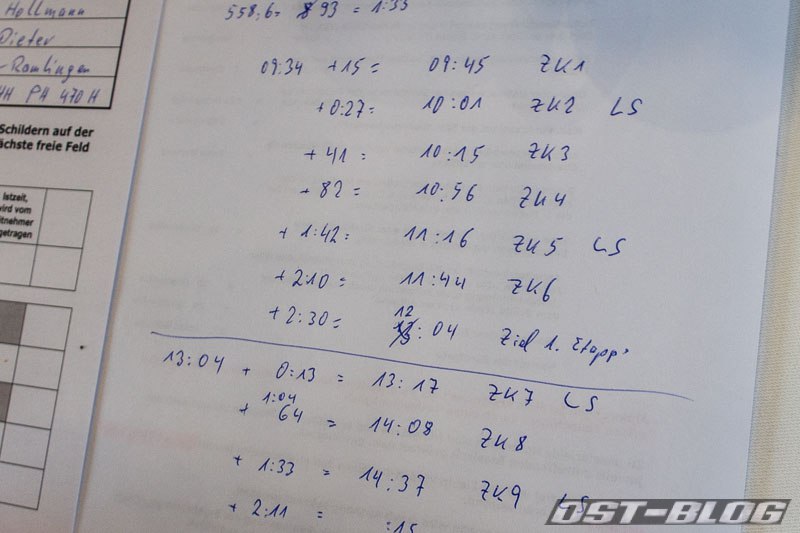 Hollmann
Dieter
-Ramlingen
HH PA 470 H
Schildern auf der
ächste freie Feld
istzeit,
wird vom
itnehmer
getragen
558,6 = 93 = 1:33
09:34 +15 = 09:45 ZK1
+0:27= 10:01 ZK2 LS
+41 = 10:15 ZK3
+82 = 10:56 ZK4
+1:42= 11:16 ZK5 LS
+2:10= 11:44 ZK6
+2:30= 12:04 Ziel 1. Etappe
13:04 + 0:13 = 13:17 ZK7 LS
1:04
+ 64 = 14:08 ZK8
+ 1:33 = 14:37 ZK9 LS
+ 2:11 = :15
OST-BLOG